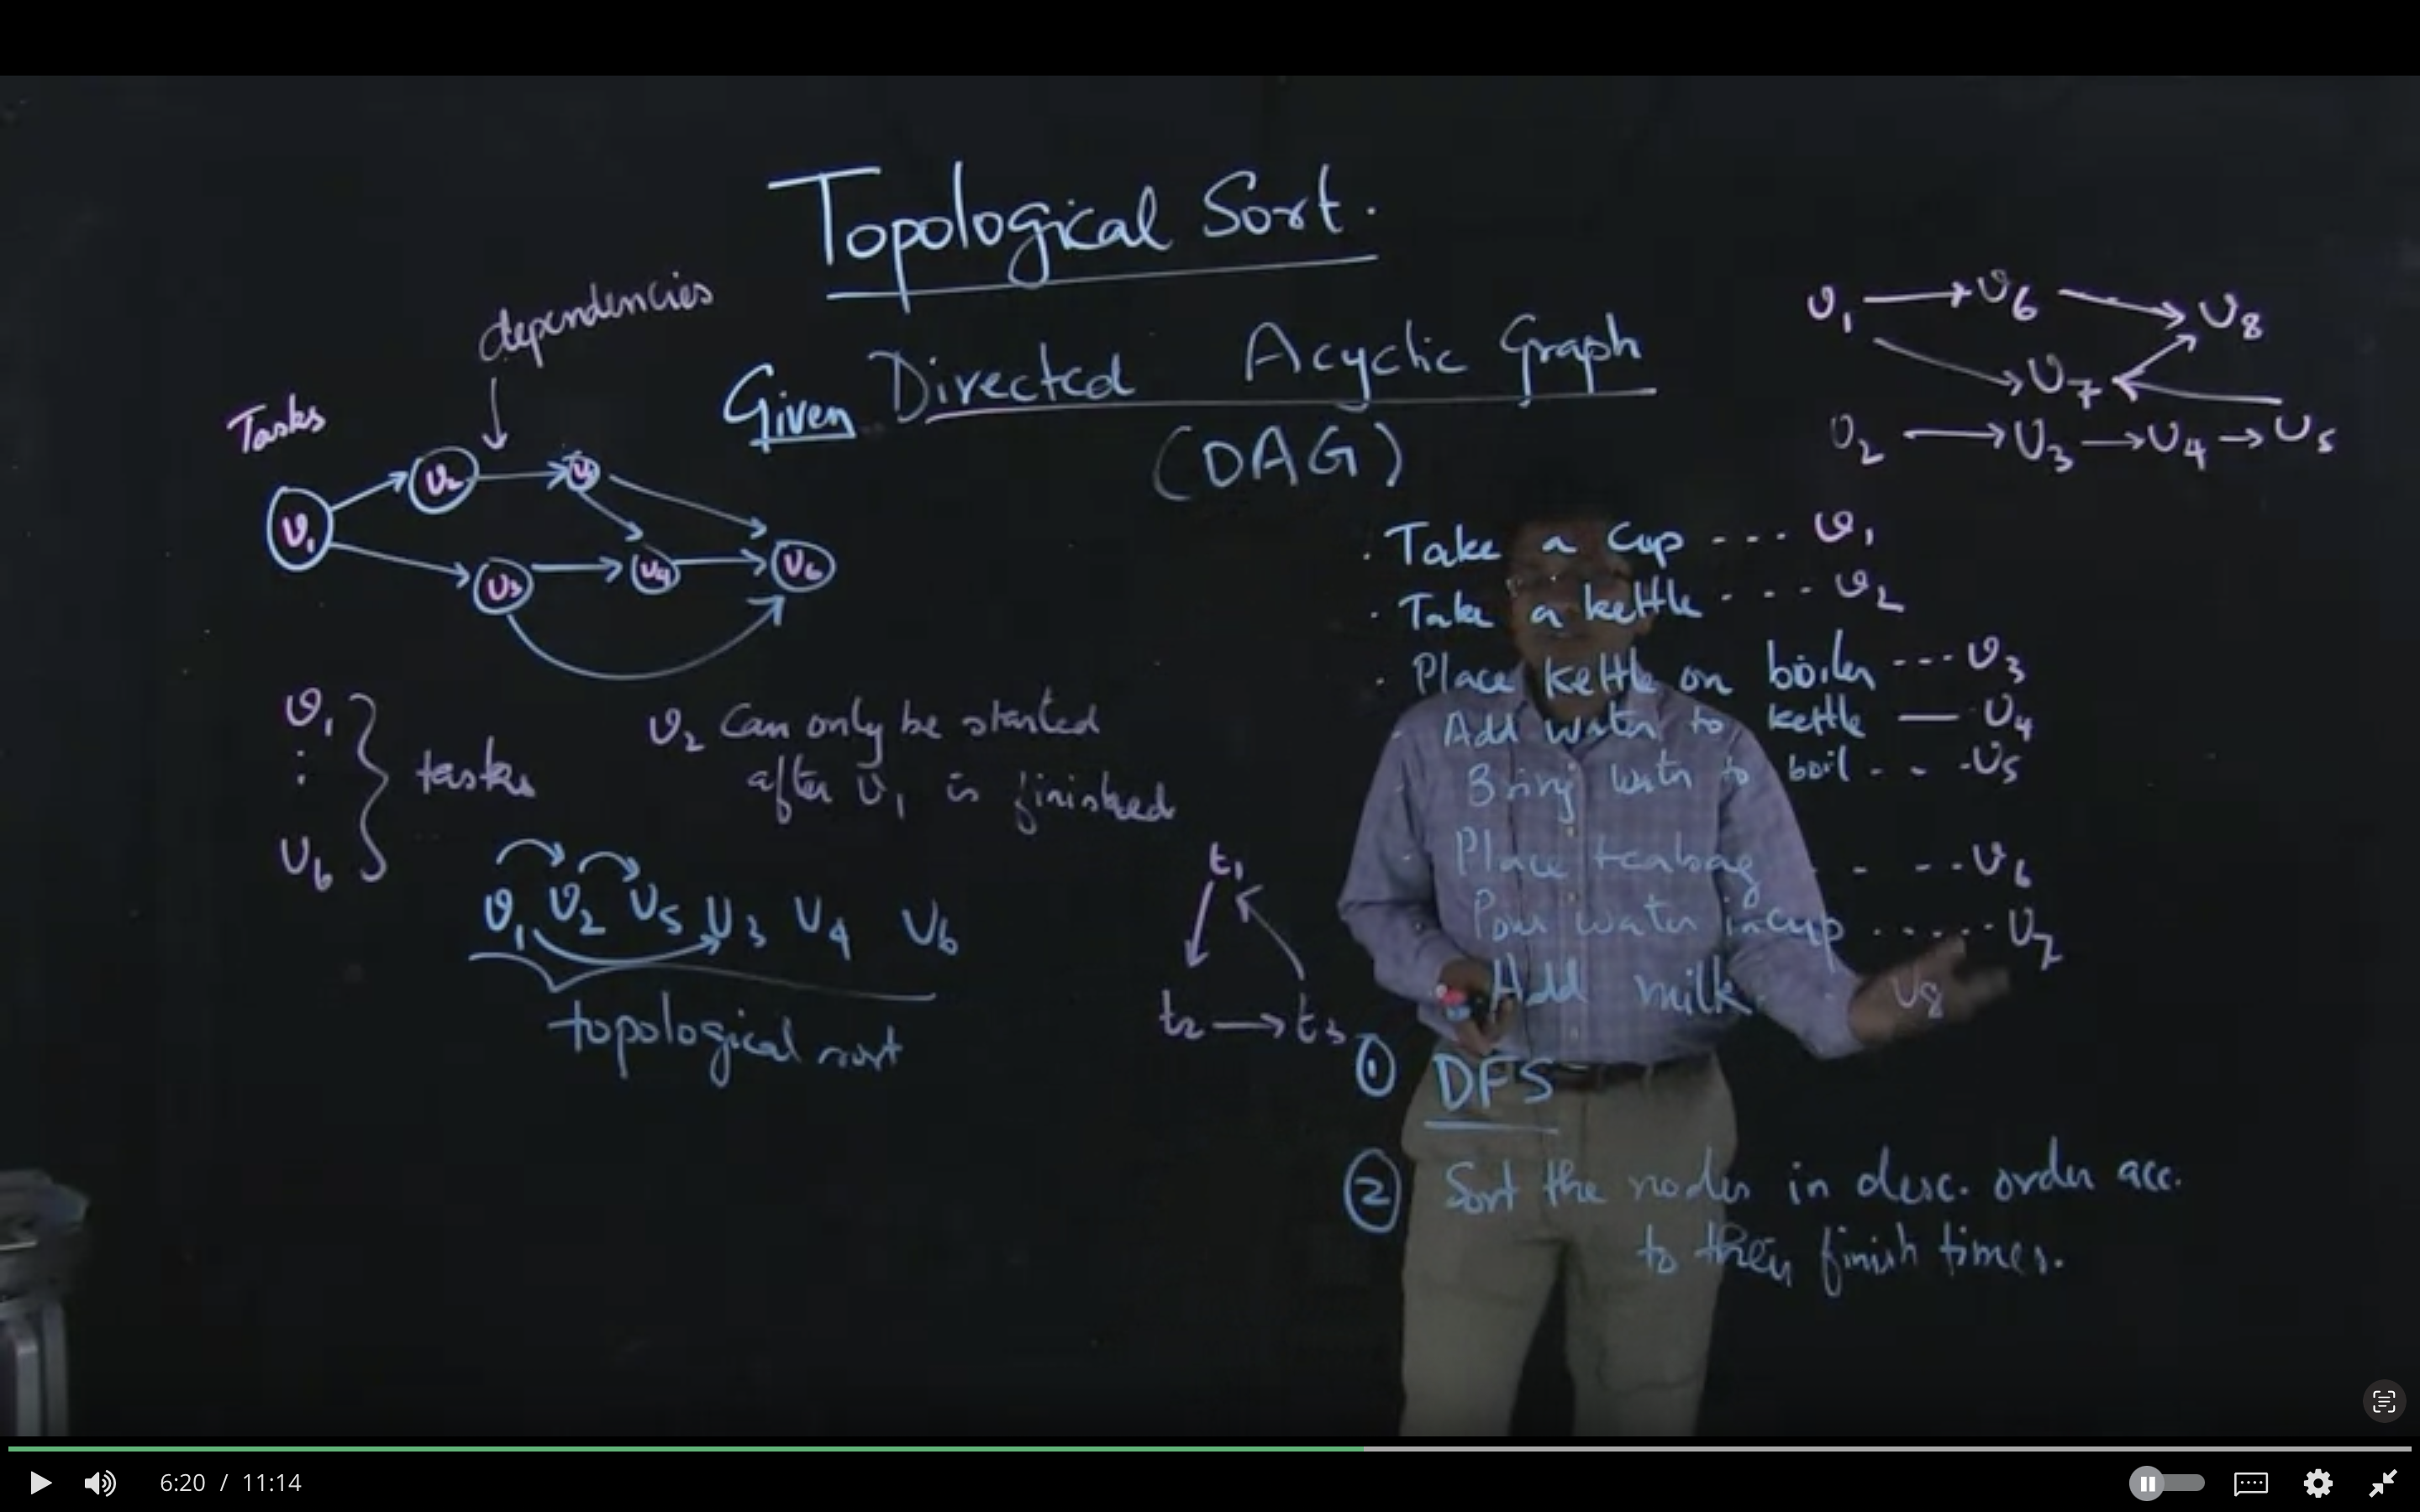 Topological Sort.
dependencies
Given Directed Acyclic Graph
(DAG)
Tasks
v1
v2
v5
v3
v4
v6
v1
:
v6
tasks
v2 Can only be started
after v1 is finished
v1 v2 v5 v3 v4 v6
topological sort
t1
t2 t3
v1 v6 v8
v7
v2 v3 v4 v5
· Take a cup --- v1
· Take a kettle - - - - v2
· Place kettle on boiler --- v3
· Add water to kettle — v4
· Bring water to boil - - - v5
· Place teabag - - - - v6
· Pour water in cup ..... v7
· Add milk. . v8
① DFS
② Sort the nodes in desc. order acc.
to their finish times.
6:20 / 11:14